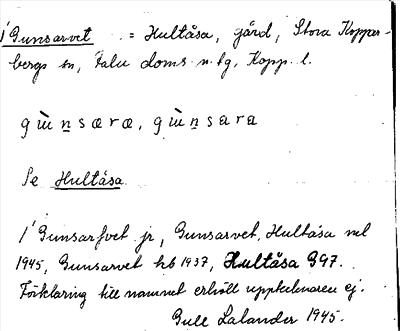 1 Gunsarvet = Hultåsa, gård, Stora Koppar-
bergs sn, Falu doms. n. tg, Kopp. l.
gɯ̀n̲særæ, gɯ̀n̲sara
Se Hultåsa
1 Gunsarfvet jr, Gunsarvet, Hultåsa ml
1945, Gunsarvet hb 1937, Hultåsa G 97.
Förklaring till namnet erhöll uppteknaren ej.
Gull Lalander 1945.